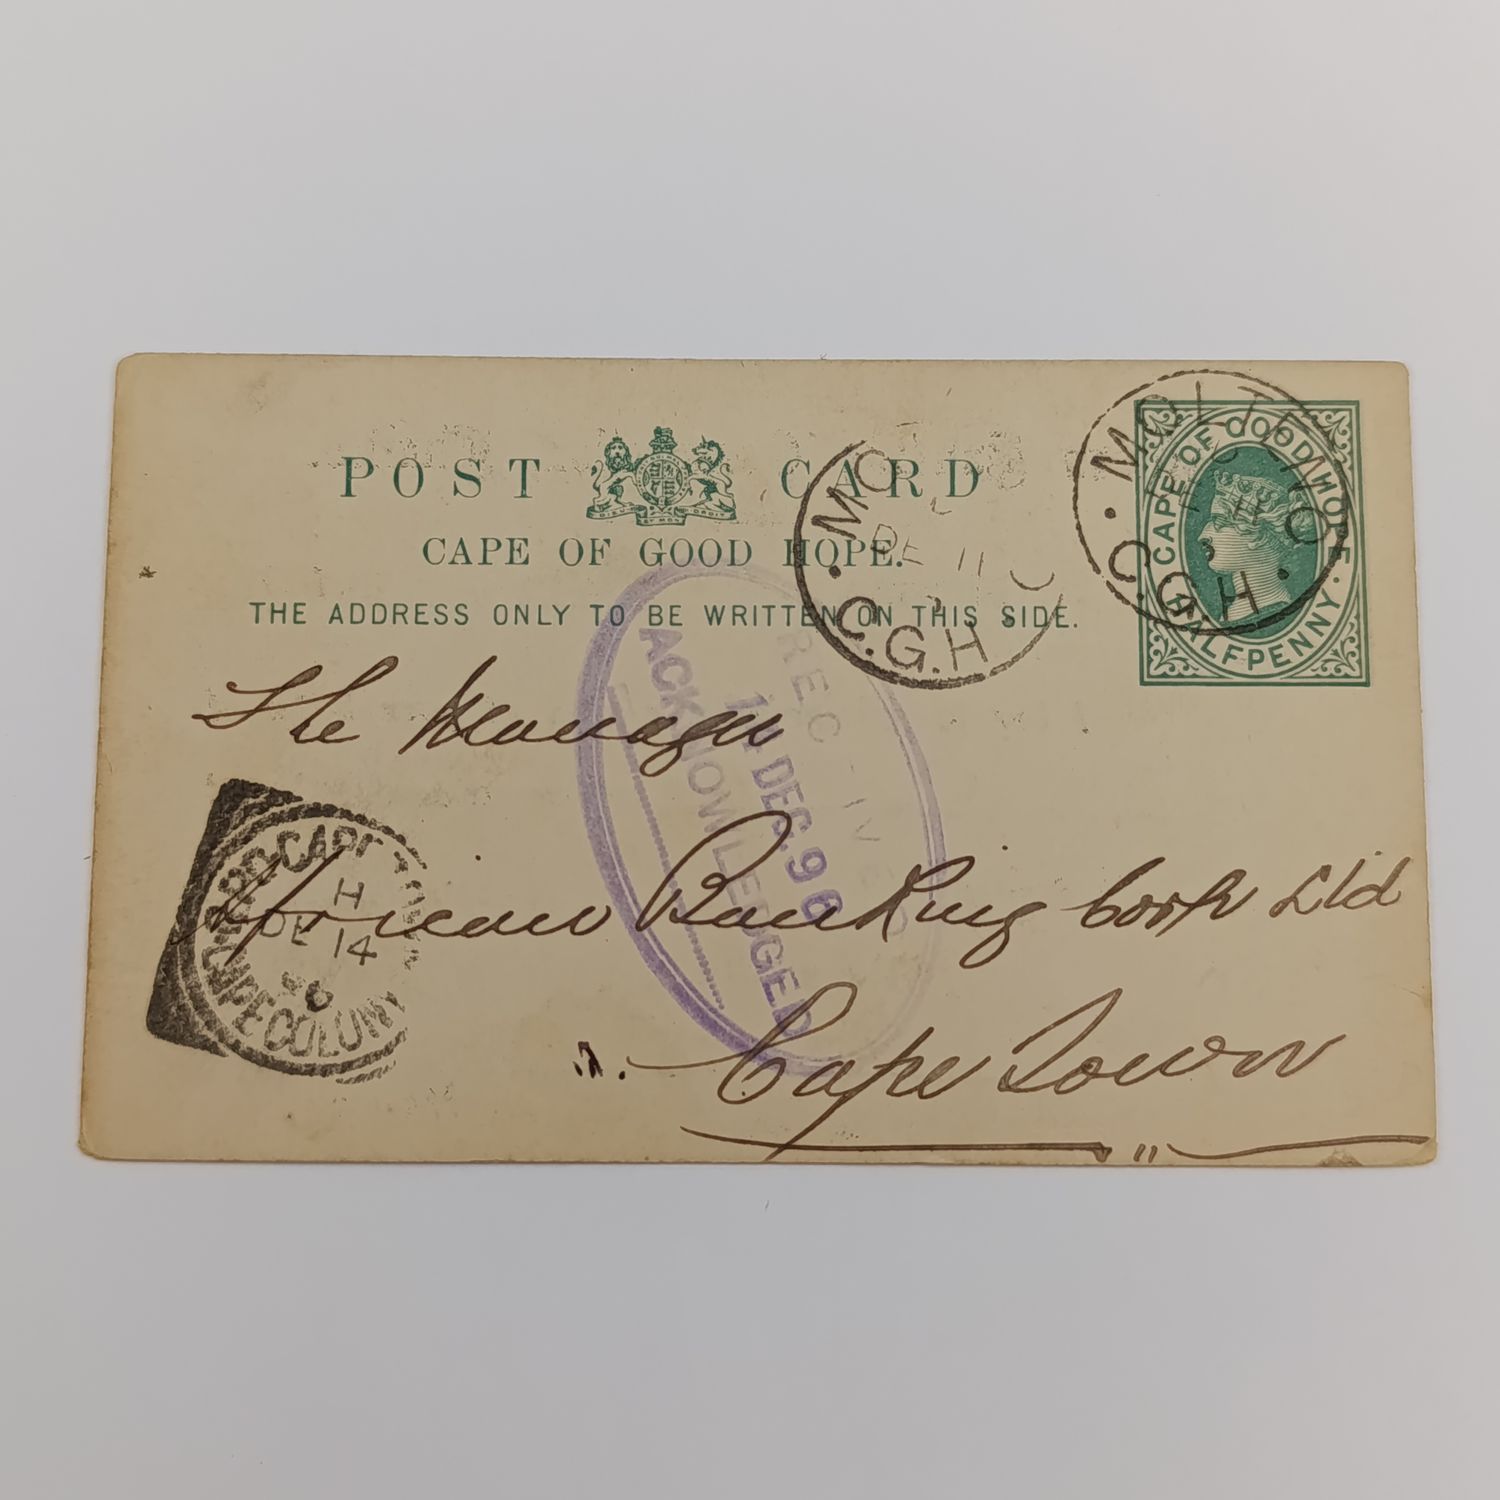 POST CARD
DIEU ET MON DROIT
CAPE OF GOOD HOPE.
THE ADDRESS ONLY TO BE WRITTEN ON THIS SIDE.
CAPE OF GOOD HOPE.
HALFPENNY
MOLTENO
C.G.H
MO
DE 11
C.G.H
RECEIVED
14 DEC. 96
ACKNOWLEDGED
The Manager
African Banking Corp Ltd
Cape Town
CAPE TOWN
H
DE 14
96
CAPE COLONY